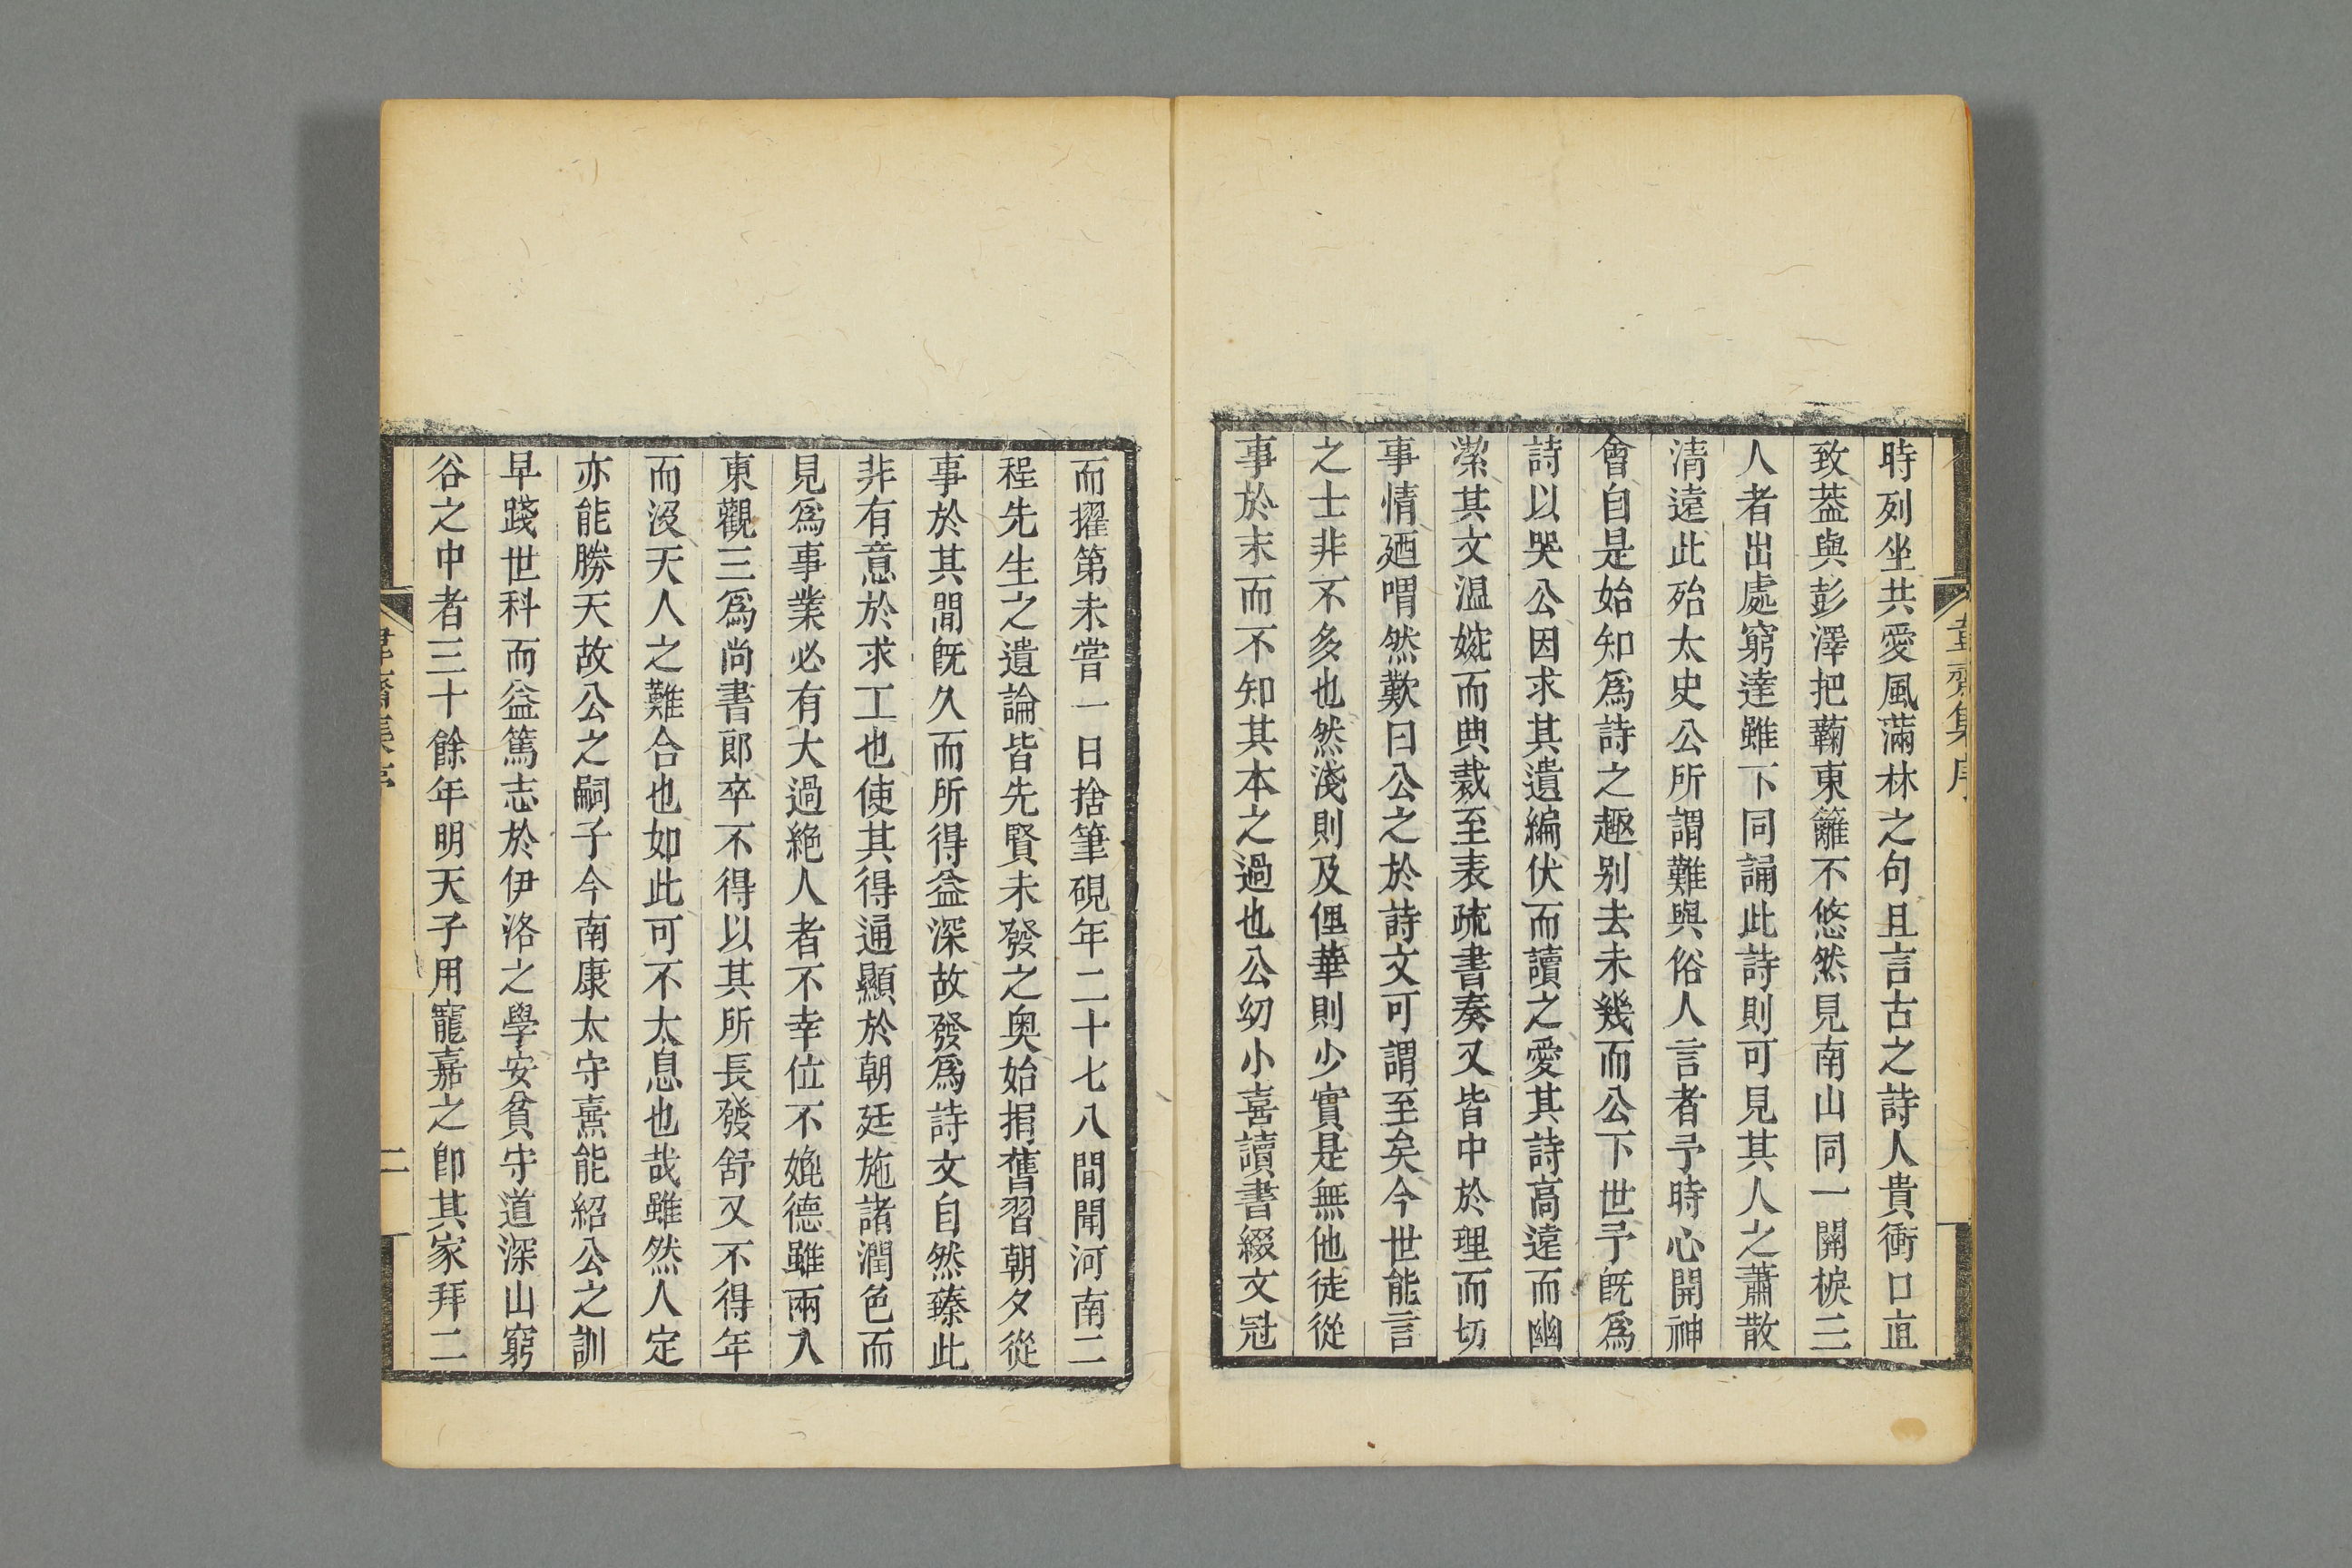 韋齋集序
時列坐共愛風滿林之句且言古之詩人貴衝口直
致葢與彭澤把蘜東籬不悠然見南山同一關棙三
人者出處窮達雖下同誦此詩則可見其人之蕭散
清遠此殆太史公所謂難與俗人言者予時心開神
會自是始知爲詩之趣别去未幾而公下世予旣爲
詩以哭公因求其遺編伏而讀之愛其詩高遠而幽
潔其文温婉而典裁至表疏書奏又皆中於理而切
事情廼喟然歎曰公之於詩文可謂至矣今世能言
之士非不多也然淺則及俚華則少實是無他徒從
事於末而不知其本之過也公幼小喜讀書綴文冠
而擢第未嘗一日捨筆硯年二十七八間聞河南二
程先生之遺論皆先賢未發之奥始捐舊習朝夕從
事於其間旣久而所得益深故發爲詩文自然臻此
非有意於求工也使其得通顯於朝廷施諸潤色而
見爲事業必有大過絶人者不幸位不媲德雖兩入
東觀三爲尚書郎卒不得以其所長發舒又不得年
而沒天人之難合也如此可不太息也哉雖然人定
亦能勝天故公之嗣子今南康太守熹能紹公之訓
早踐世科而益篤志於伊洛之學安貧守道深山窮
谷之中者三十餘年明天子用寵嘉之卽其家拜二
韋齋集序
二